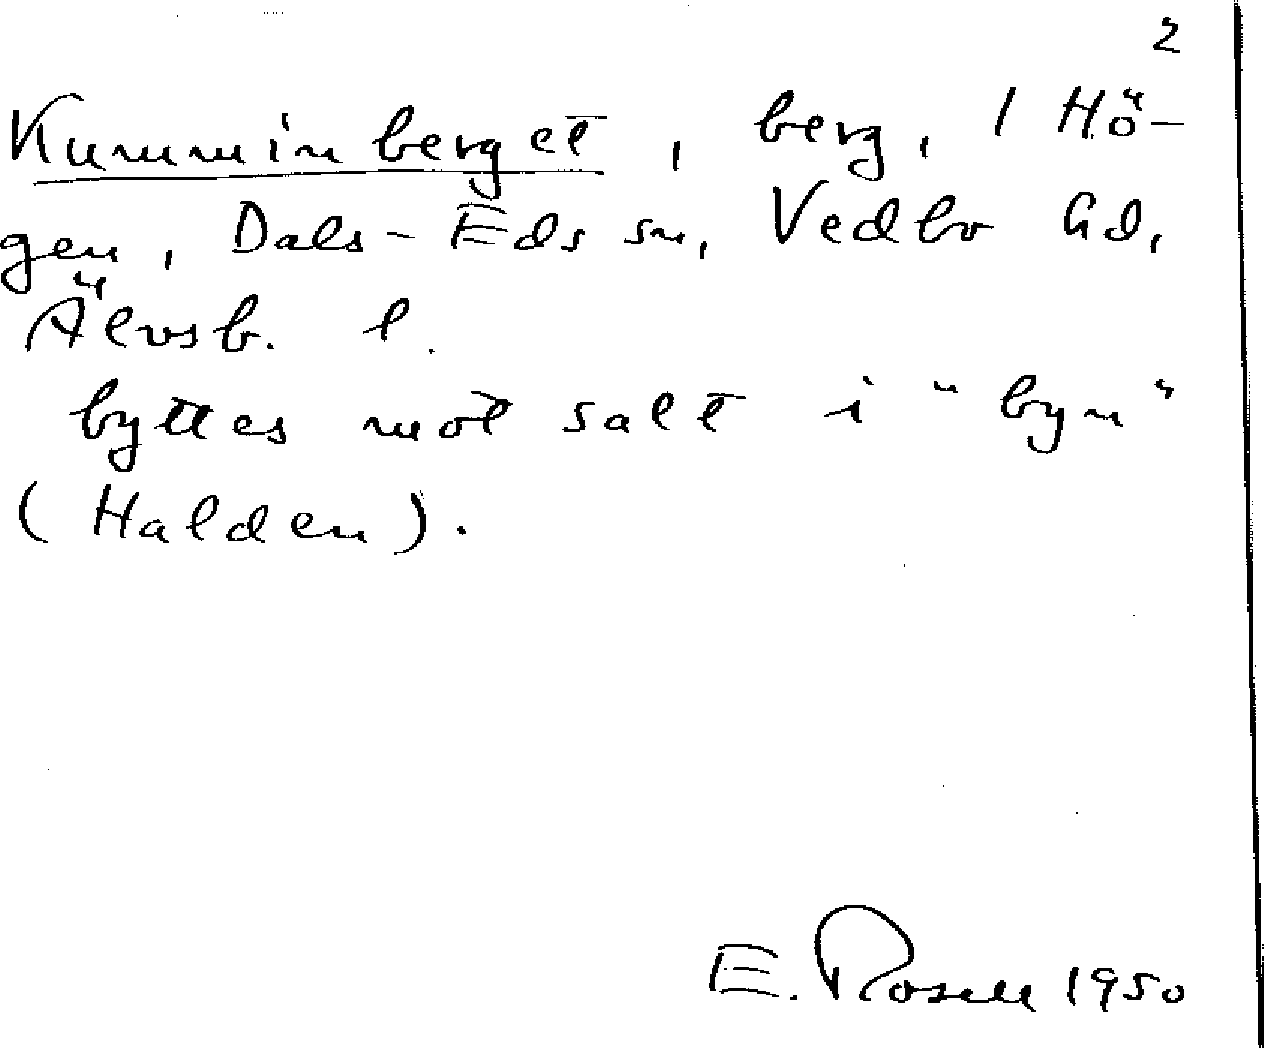 2
Kumminberget, berg, 1 Hö-
gen, Dals-Eds sn, Vedbo hd,
Älvsb. l.
byttes mot salt i "byn"
(Halden).
E. Rosell 1950